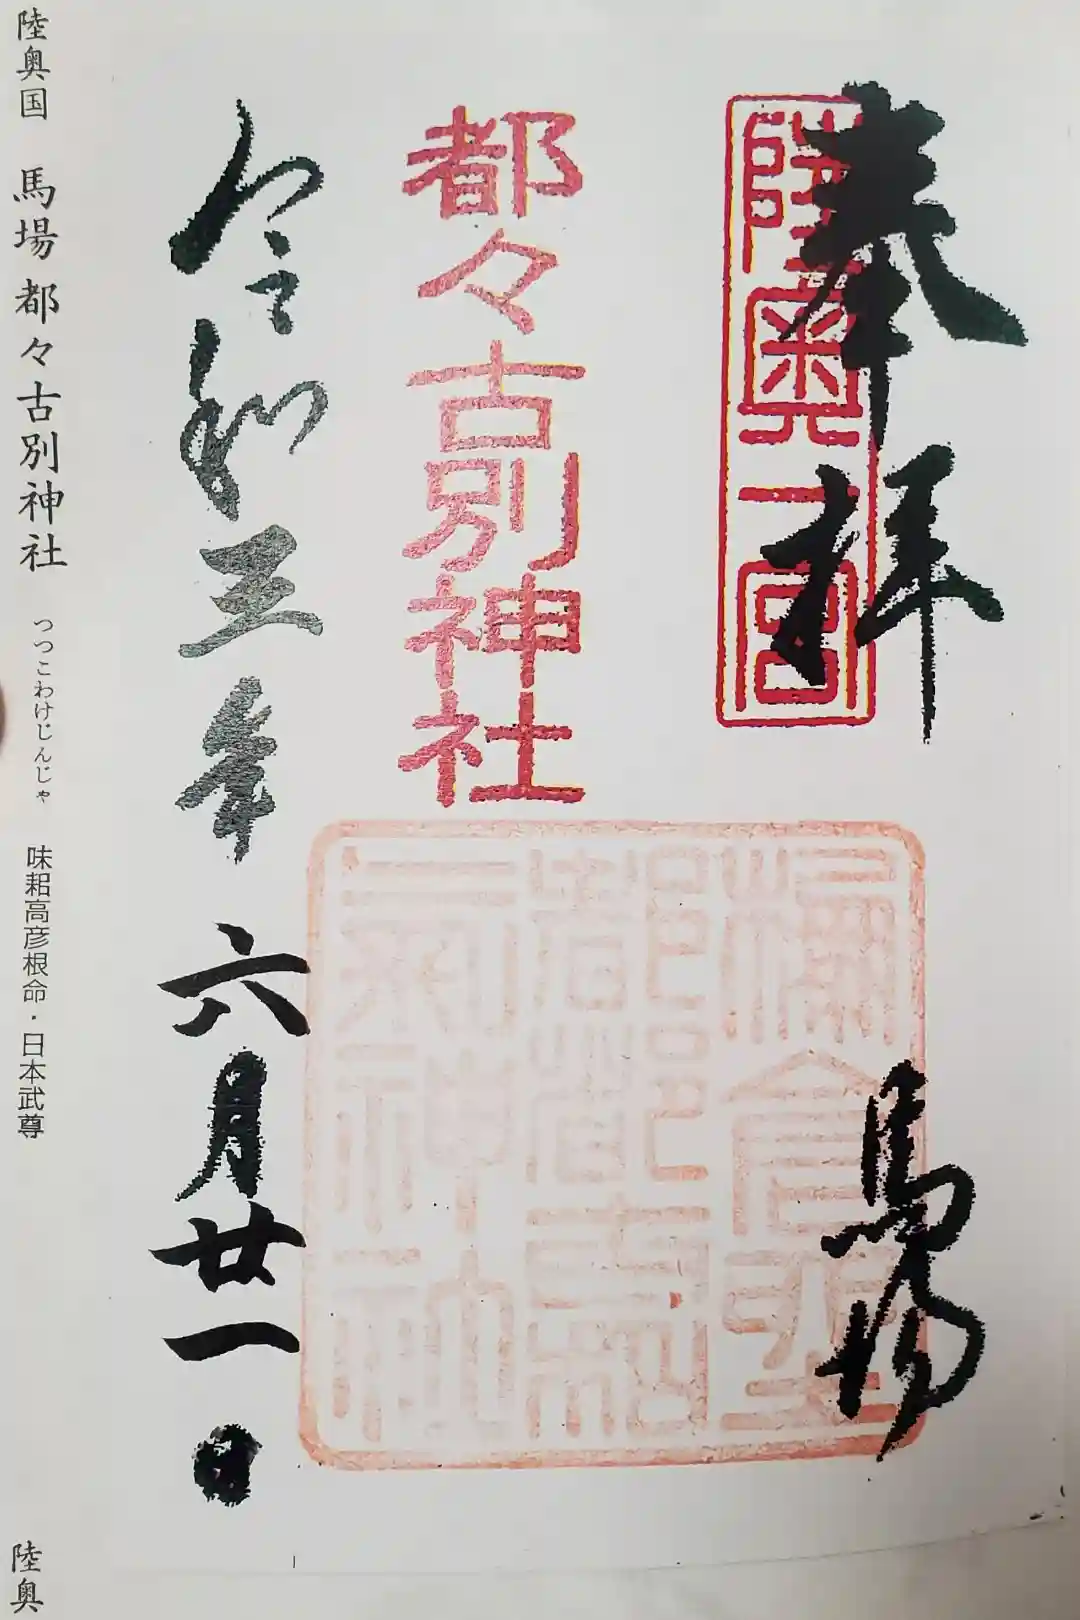 奉拝
陸奥一宮
馬場
都々古別神社
令和三年六月廿一日
陸奥国 馬場 都々古別神社 つつこわけじんじゃ 味耜高彦根命・日本武尊
陸奥